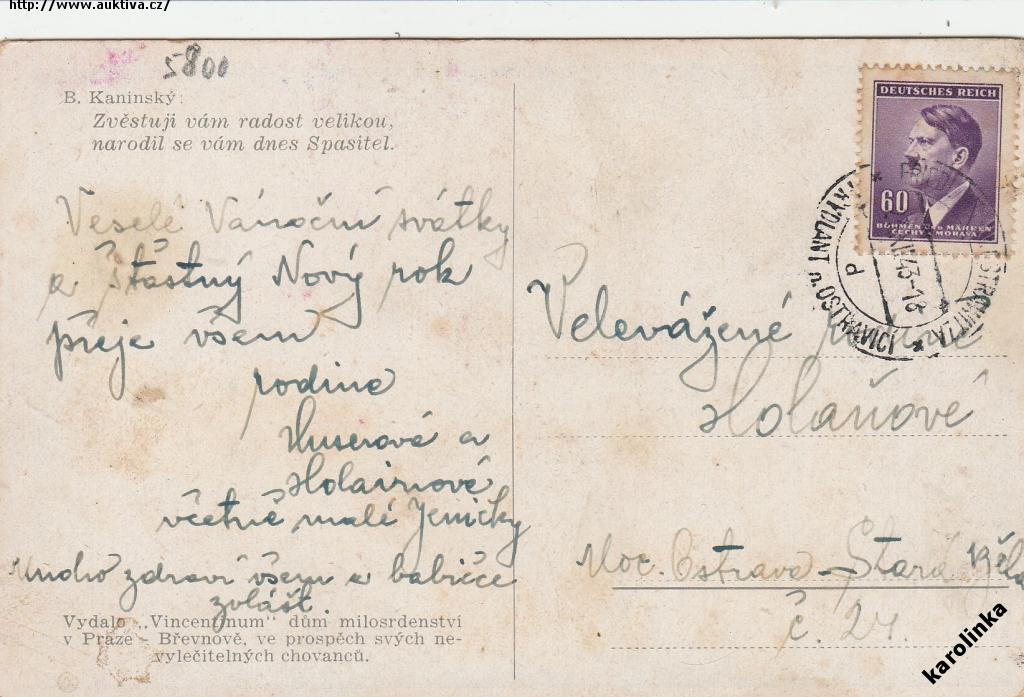 http://www.auktiva.cz/
5800
B. Kaninský:
Zvěstuji vám radost velikou,
narodil se vám dnes Spasitel.
Veselé Vánoční svátky
a šťastný Nový rok
přeje všem
rodina
a
včetně malé Jeničky
Mnoho zdraví všem a babičce
zvlášť.
Vydalo „Vincentinum" dům milosrdenství
v Praze - Břevnově, ve prospěch svých ne-
vyléčitelných chovanců.
DEUTSCHES REICH
60
BÖHMEN und MÄHREN
ČECHY a MORAVA
FRÝDLANT n. OSTRAVICÍ
Velevážené
Holaňové
Mor. Ostrava - Stará Bělá
č. 24.
karolinka